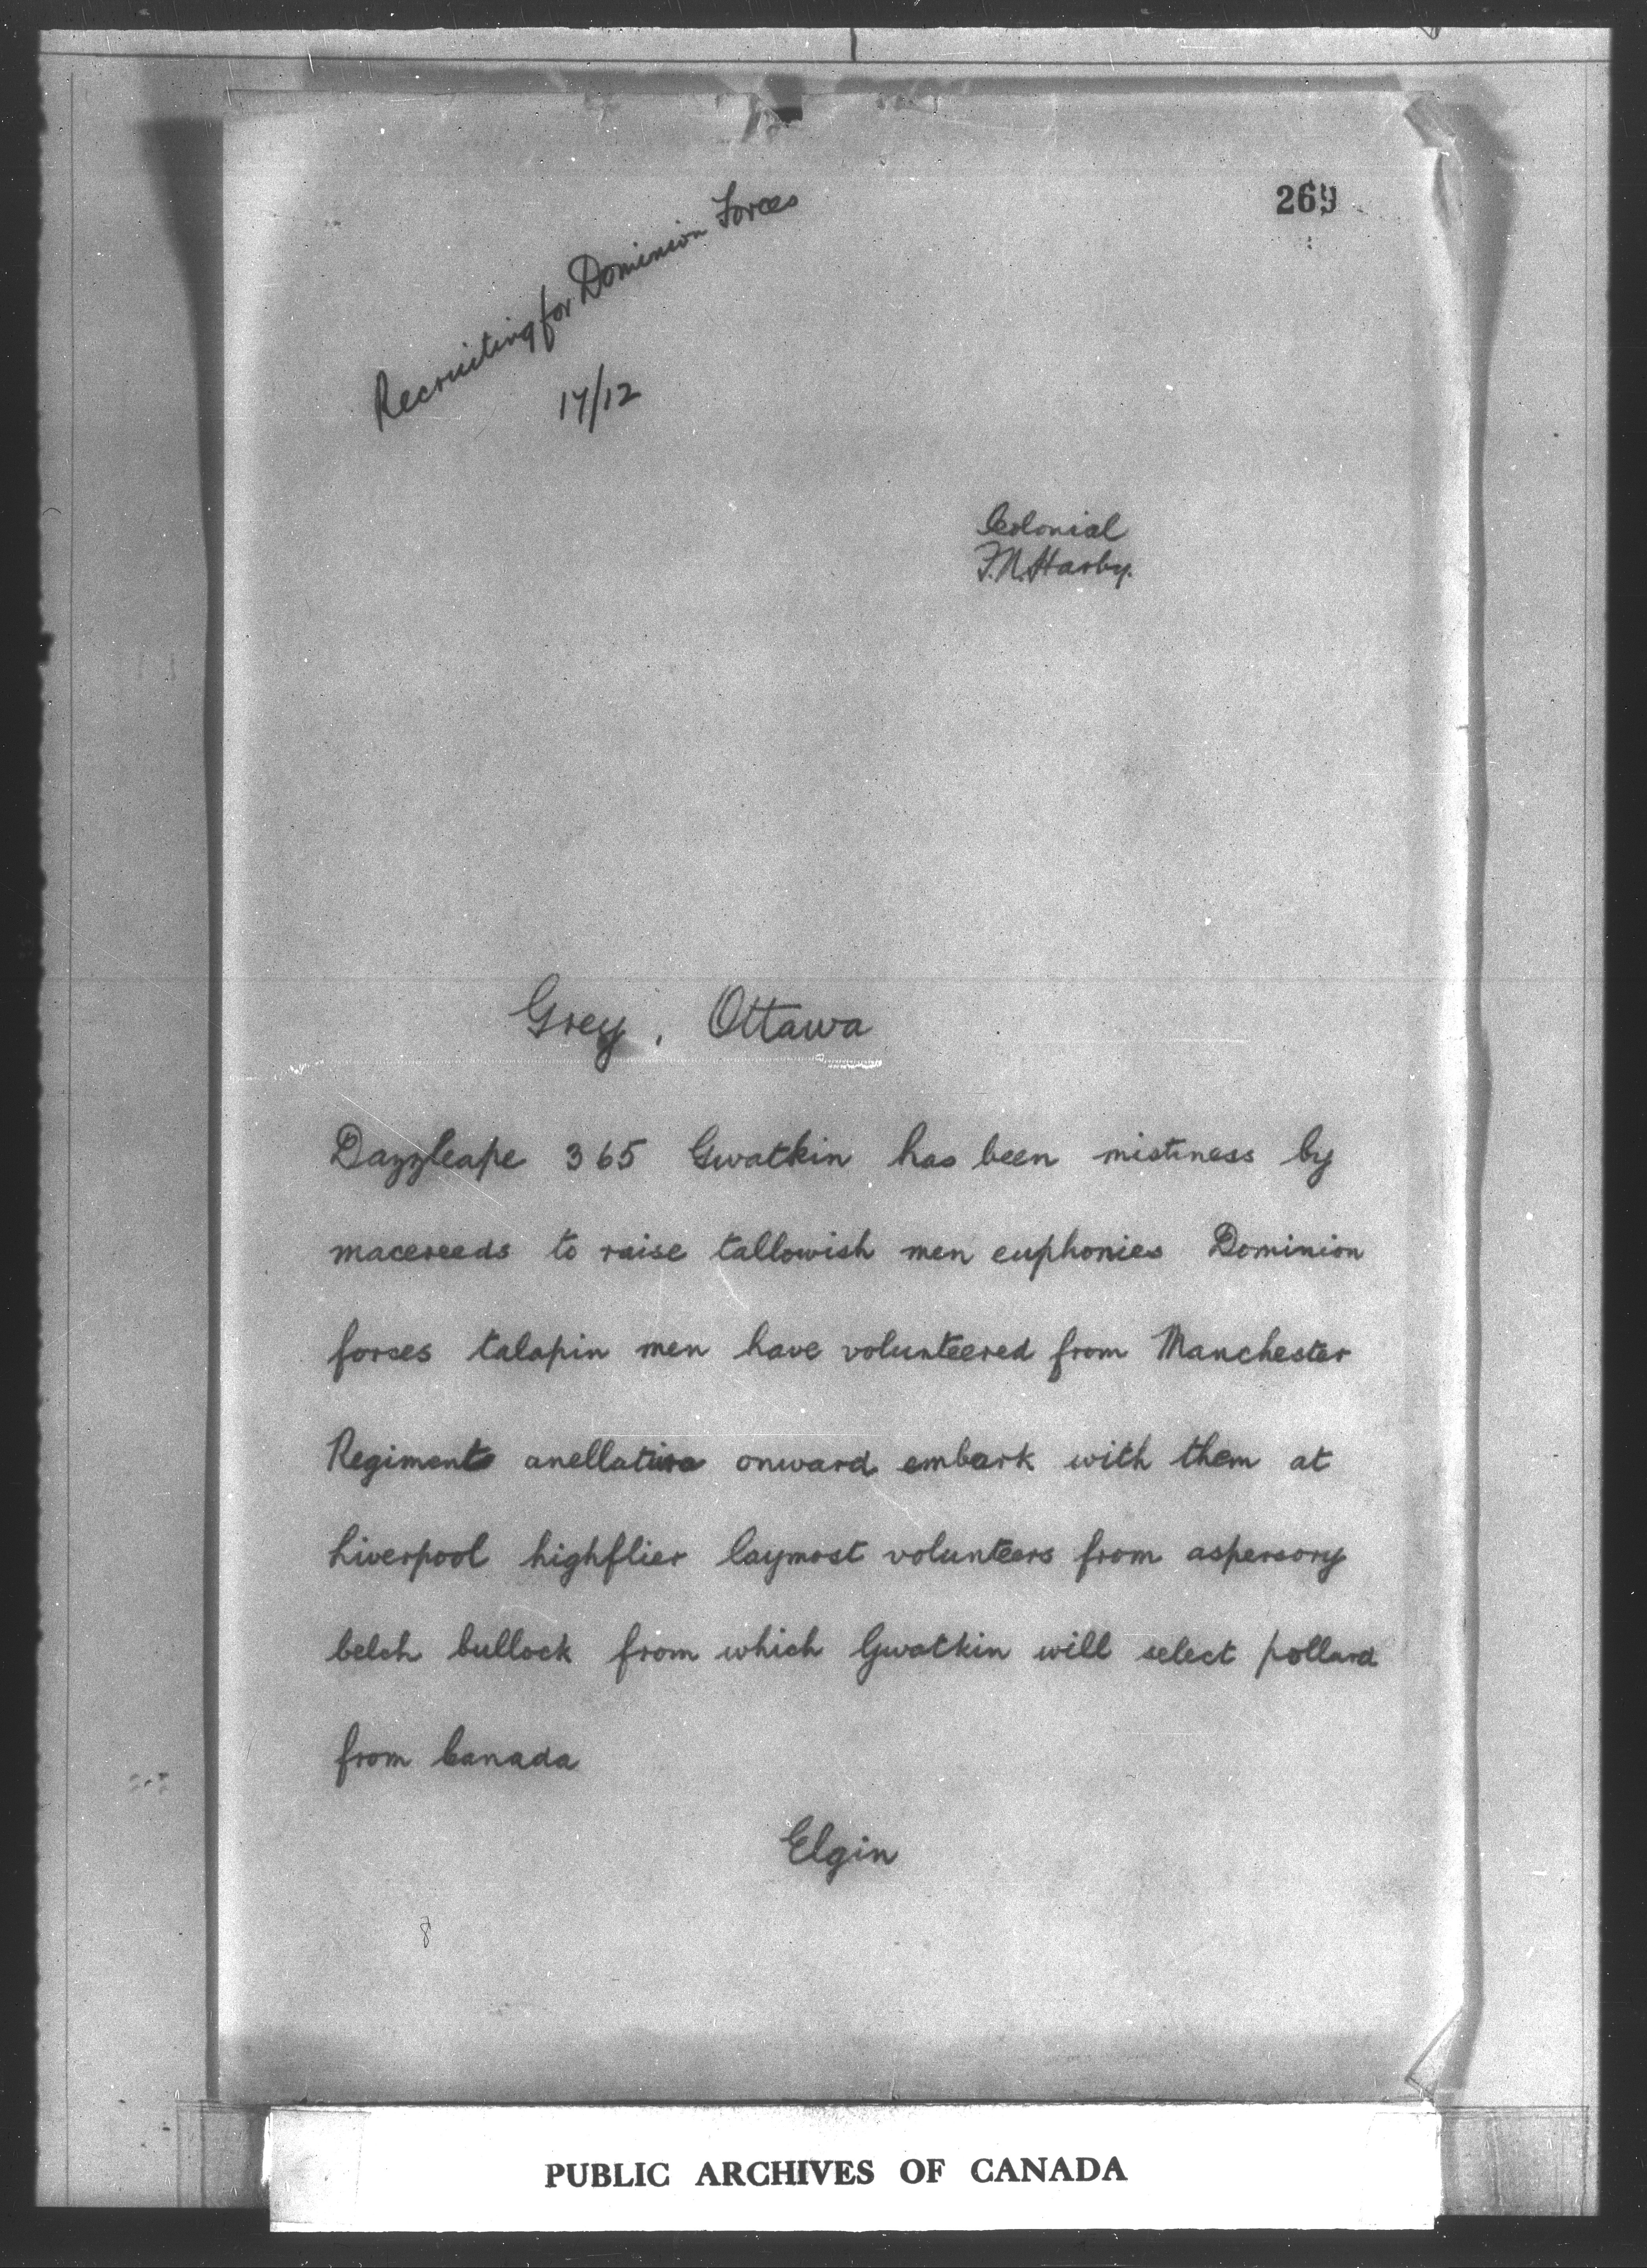 269
Recruiting for Dominion Forces
17/12
Colonial
F.N. Harby.
Grey, Ottawa
Dazzleape 365 Gwatkin has been mistiness by
macereeds to raise tallowish men euphonies Dominion
forces talapin men have volunteered from Manchester
Regiments onward embark with them at
Liverpool highflier laymost volunteers from aspersory
belch bullock from which Gwatkin will select pollard
from Canada
Elgin
8
PUBLIC ARCHIVES OF CANADA